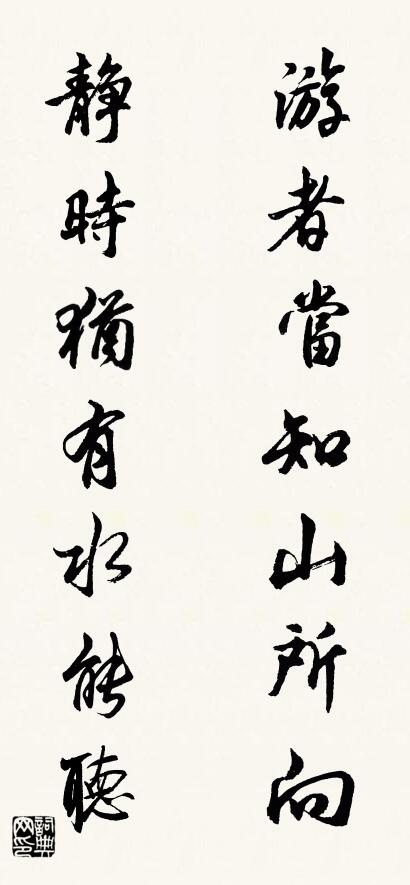 游者當知山所向
静時猶有水能聽
詞典網印